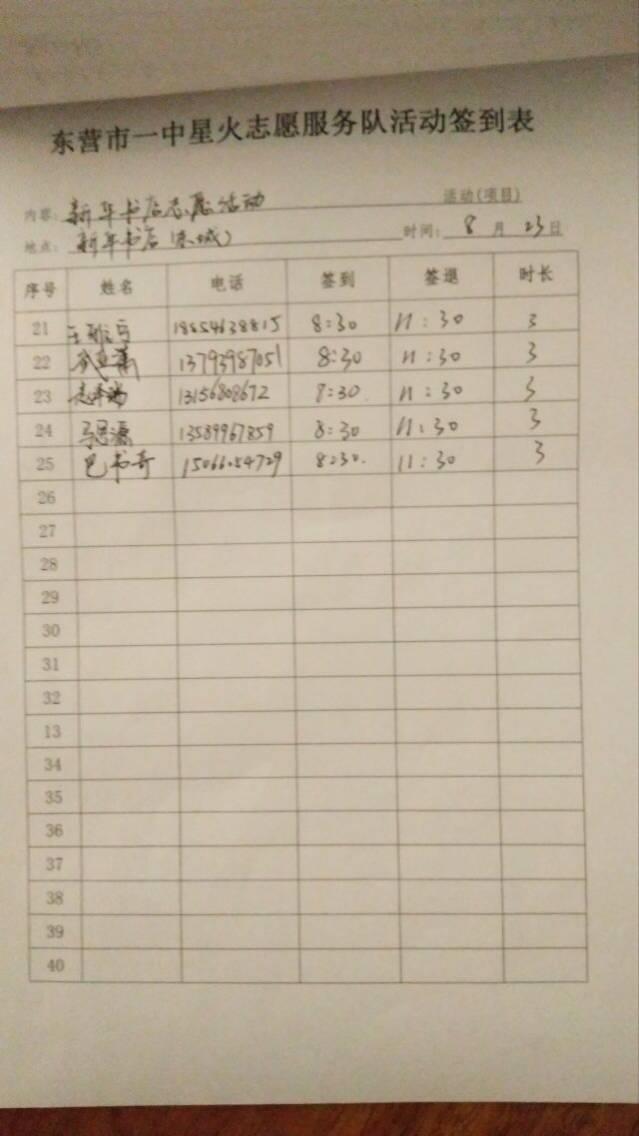 东营市一中星火志愿服务队活动签到表
内容: 新华书店志愿活动 活动(项目)
地点: 新华书店(东城) 时间: 8 月 23 日
序号 姓名 电话 签到 签退 时长
21 18654638815 8:30 11:30 3
22 13793987051 8:30 11:30 3
23 13156808672 8:30 11:30 3
24 马思源 13589967859 8:30 11:30 3
25 巴书奇 15066054729 8:30. 11:30 3
26
27
28
29
30
31
32
13
34
35
36
37
38
39
40